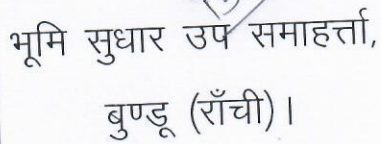 भूमि सुधार उप समाहर्त्ता,
बुण्डू (राँची) ।